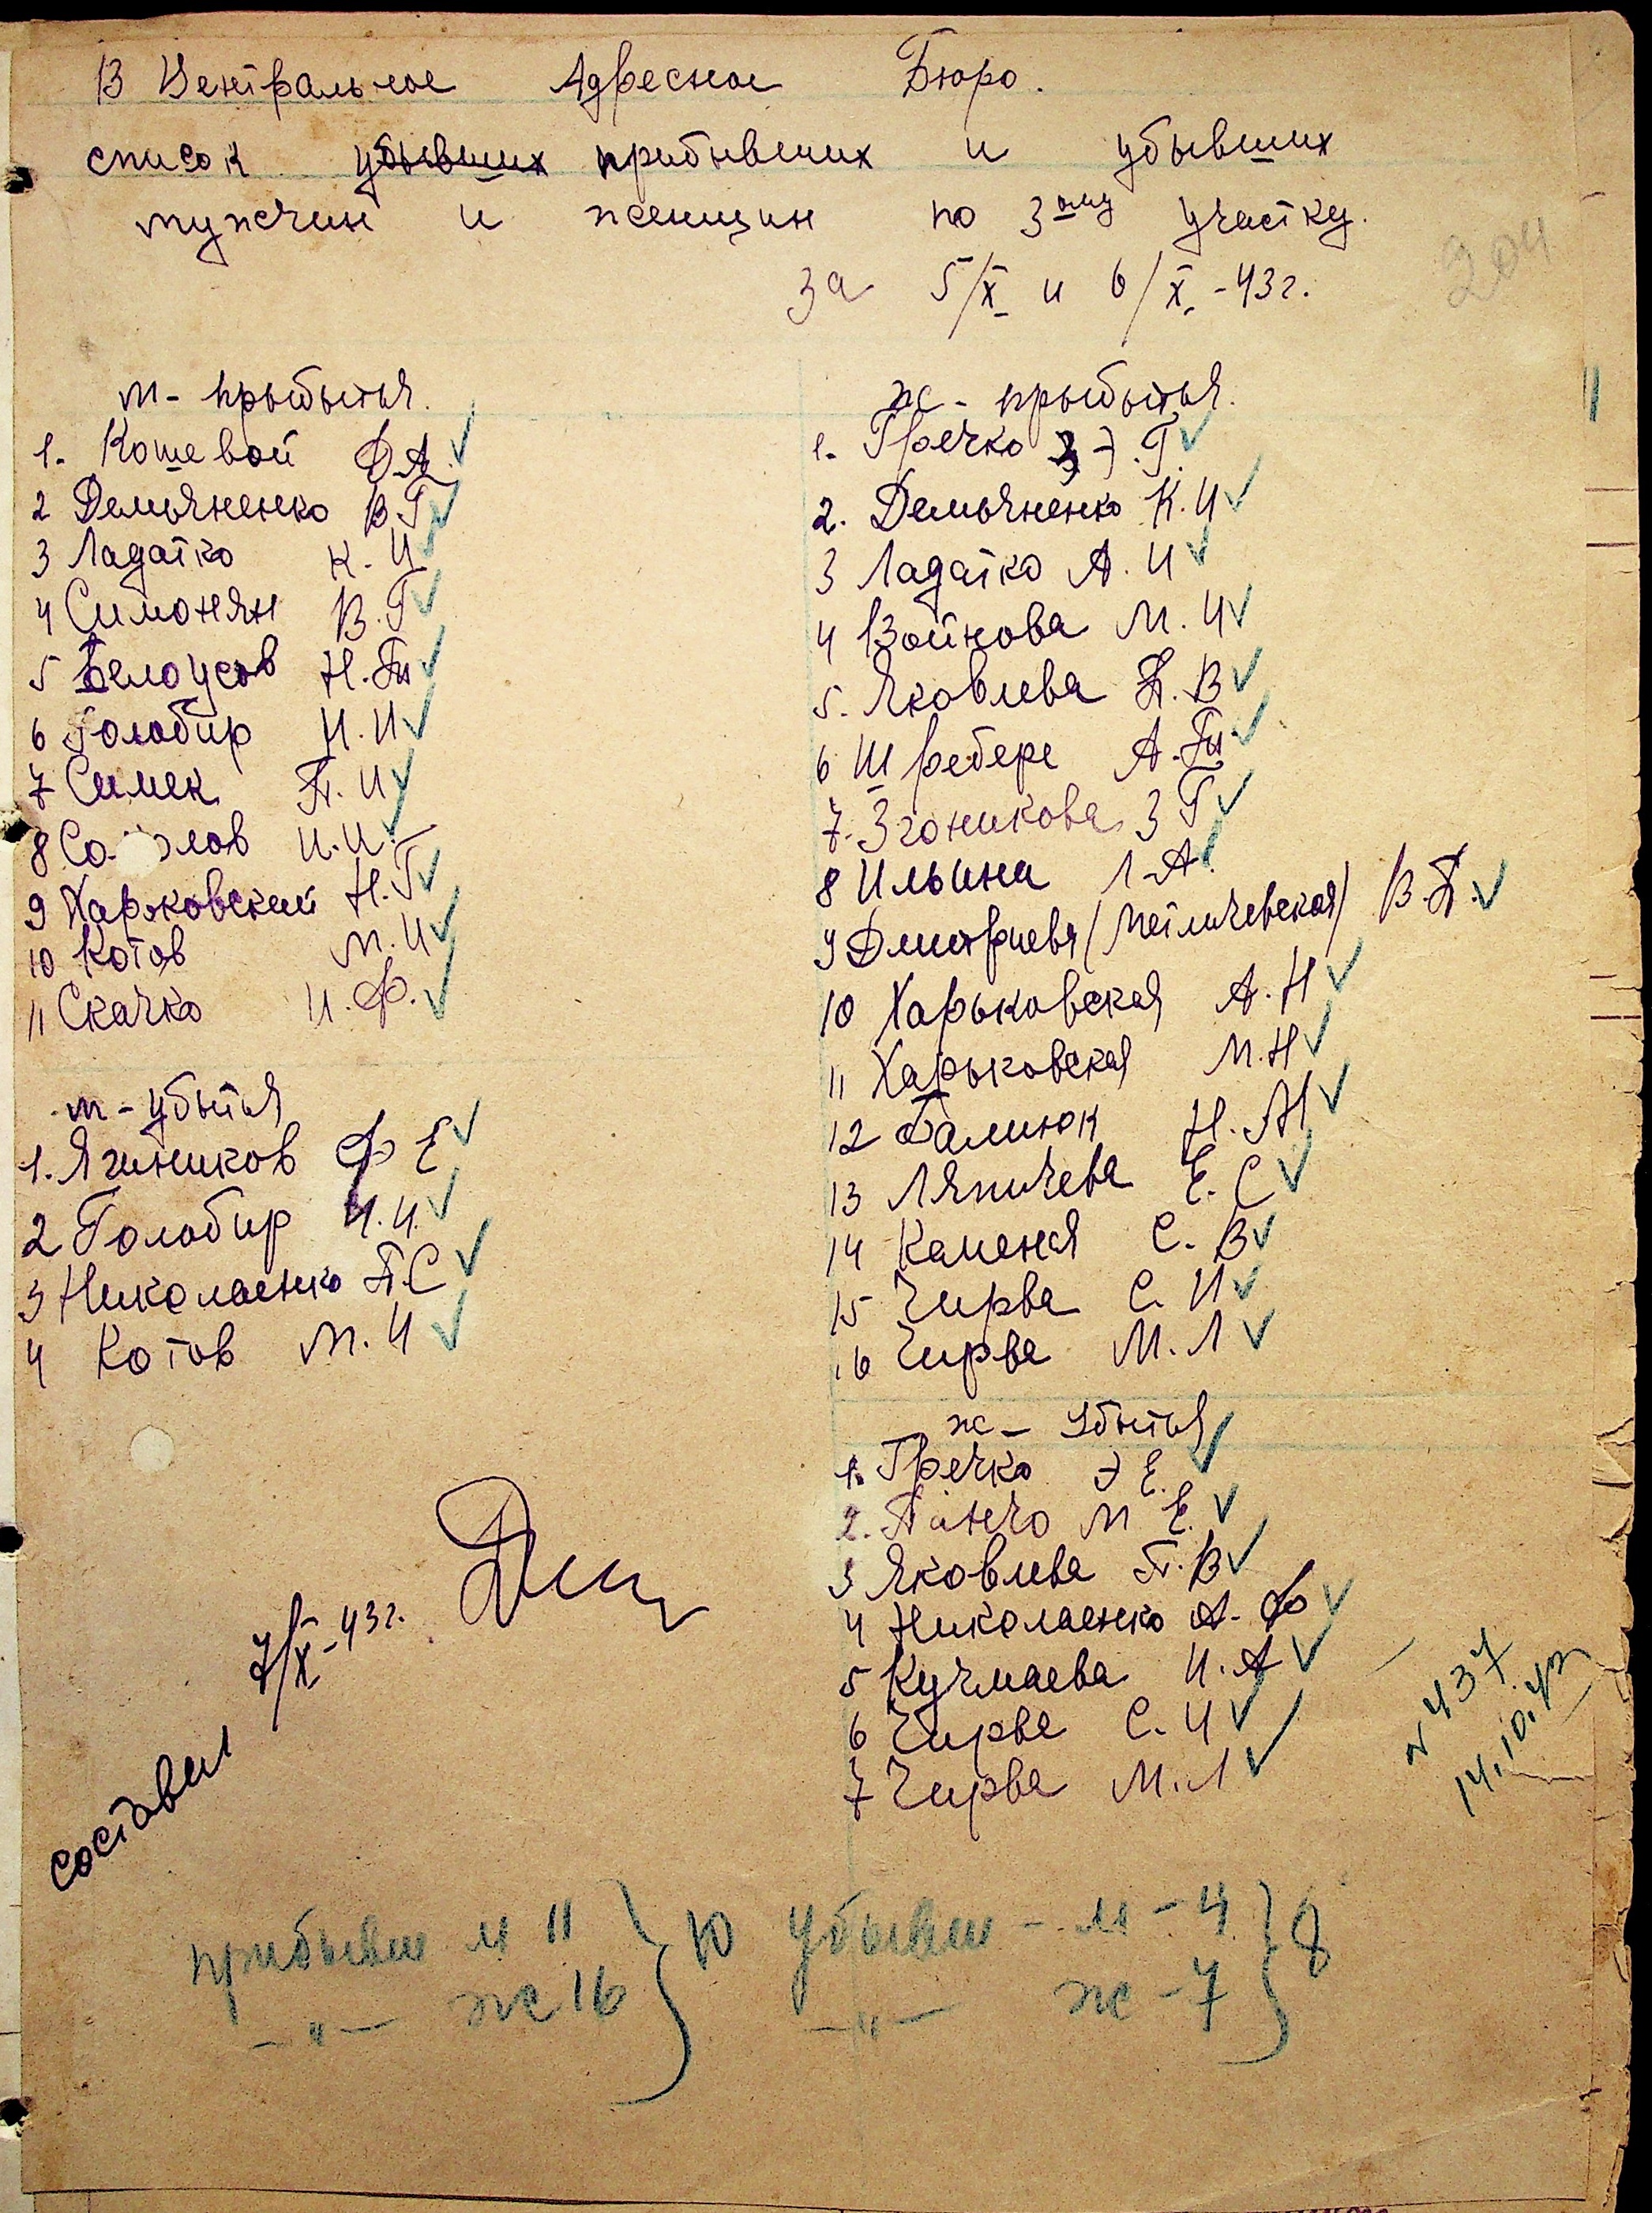 В Центральное Адресное Бюро.
список убывших прибывших и убывших
мужчин и женщин по 3ому участку.
За 5/X и 6/X-43г.
204
м- прыбытья.
1. Кошевой Ф.А.
2 Демьяненко В.Г
3 Ладатко К.И
4 Симонян В.Г
5 Белоусов Н.Ги
6 Голобир И.И
7 Симек П.И
8 Со...лов И.И.
9 Харьковский Н.Г
10 Котов М.И
11 Скачко И.Ф.
м-убытья
1. Ягинников Ф Е
2 Голобир И.И.
3 Николаенко П.С
4 Котов М.И
ж- прыбытья.
1. Гречко Э.Г.
2. Демьяненко К.И
3 Ладатко А.И
4 Войнова М.И
5. Яковлева П.В
6 Шредере А.Ги
7. Згоникова З Г
8 Ильина Л.А.
9 Дмитриева (Метличевская) В.П.
10 Харьковская А.Н
11 Харьковская М.Н
12 Далинюк Н.М
13 Ляпичева Е.С
14 Каменая С.В
15 Чирва С.И
16 Чирва М.Л
ж- убытья
1. Гречко Э Е.
2. Панчо М Е.
3 Яковлева П.В
4 Николаенко А.Ф
5 Кучмаева И.А
6 Чирва С.И
7 Чирва М.Л
составил 7/X-43г.
N 437
14.10.43
прибывш м 11 } 10 убывш - м-4 } 8
-"- ж 16 -"- ж-7